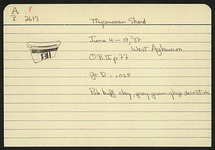 A
I 2613
Mycenaean Sherd
June 4-19, '37
West Aghurion
O.B. II p 77
Gr. D. - .050
Pale buff clay, grey-green glaze decoration